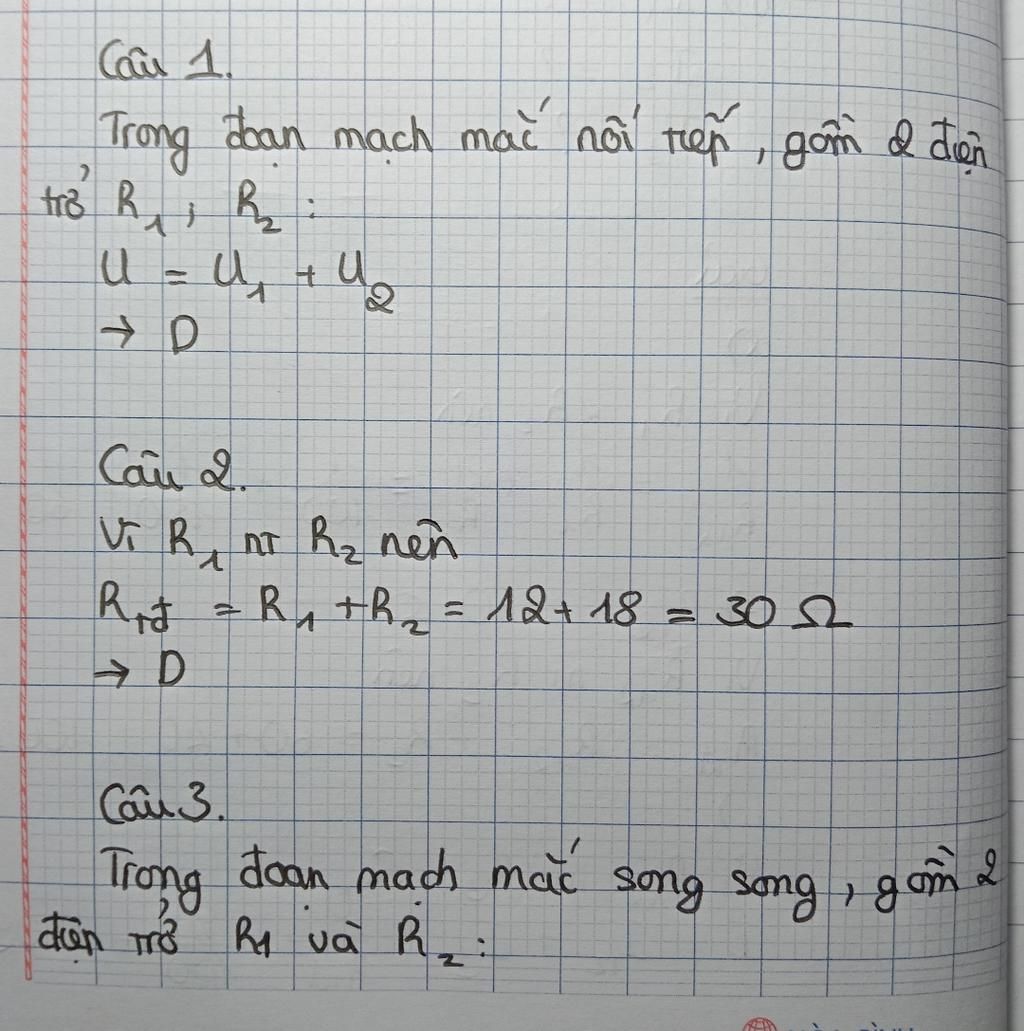 Câu 1.
Trong đoạn mạch mắc nối tiếp, gồm 2 điện
trở R₁; R₂:
U = U₁ + U₂
→ D
Câu 2.
Vì R₁ nt R₂ nên
Rtđ = R₁ + R₂ = 12 + 18 = 30 Ω
→ D
Câu 3.
Trong đoạn mạch mắc song song, gồm 2
điện trở R₁ và R₂: